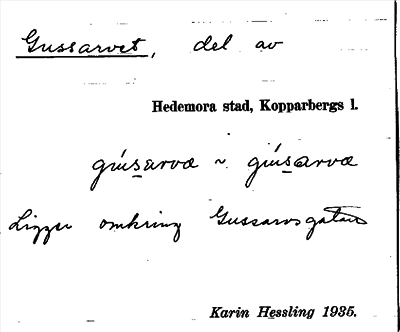 Gussarvet, del av
Hedemora stad, Kopparbergs l.
gúsarvæ ~ gúsarvæ
Ligger omkring Gussarvsgatan
Karin Hessling 1935.